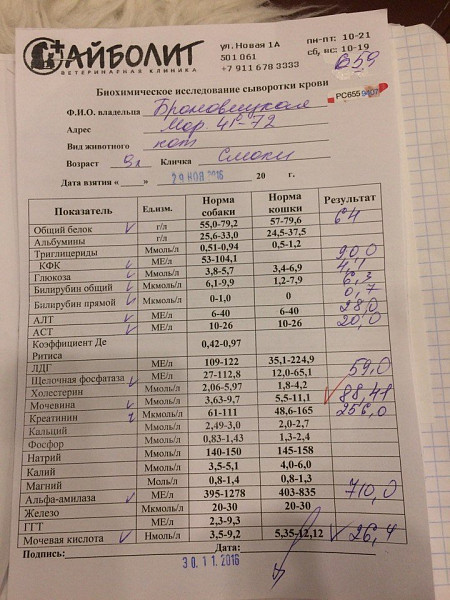 АЙБОЛИТ
ВЕТЕРИНАРНАЯ КЛИНИКА
ул. Новая 1А
501 061
+7 911 678 3333
пн-пт: 10-21
сб, вс: 10-19
659
Биохимическое исследование сыворотки крови
PC655 9407
Ф.И.О. владельца Броновицкая
Адрес Мор. 4Г-72
Вид животного кот
Возраст 9л Кличка Смоки
Дата взятия «____» 29 НОЯ 2016 20 г.
Показатель Ед.изм. Норма собаки Норма кошки Результат
Общий белок г/л 55,0-79,2 57-79,6 64
Альбумины г/л 25,6-33,0 24,5-37,5
Триглицериды Ммоль/л 0,51-0,94 0,5-1,2
КФК МЕ/л 53-104,1 90,0
Глюкоза Ммоль/л 3,8-5,7 3,4-6,9 4,1
Билирубин общий Мкмоль/л 6,1-9,9 1,2-7,9 6,3
Билирубин прямой Мкмоль/л 0-1,0 0 0,7
АЛТ МЕ/л 6-40 6-40 28,0
АСТ МЕ/л 10-26 10-26 20,0
Коэффициент Де Ритиса 0,42-0,97
ЛДГ МЕ/л 109-122 35,1-224,9
Щелочная фосфатаза МЕ/л 27-112,8 12,0-65,1 59,0
Холестерин Ммоль/л 2,06-5,97 1,8-4,2
Мочевина Ммоль/л 3,63-9,7 5,5-11,1 88,41
Креатинин Мкмоль/л 61-111 48,6-165 256,0
Кальций Ммоль/л 2,49-3,0 2,0-2,7
Фосфор Ммоль/л 0,83-1,43 1,3-2,4
Натрий Ммоль/л 140-150 145-158
Калий Ммоль/л 3,5-5,1 4,0-6,0
Магний Моль/л 0,8-1,4 0,8-1,3
Альфа-амилаза МЕ/л 395-1278 403-835 710,0
Железо Мкмоль/л 20-30 20-30
ГГТ МЕ/л 2,3-9,3
Мочевая кислота Нмоль/л 3,5-9,2 5,35-12,12 26,4
Подпись: Дата:
30.11.2016